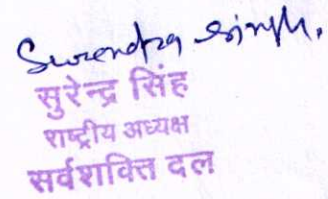 Surendra Singh.
सुरेन्द्र सिंह
राष्ट्रीय अध्यक्ष
सर्वशक्ति दल